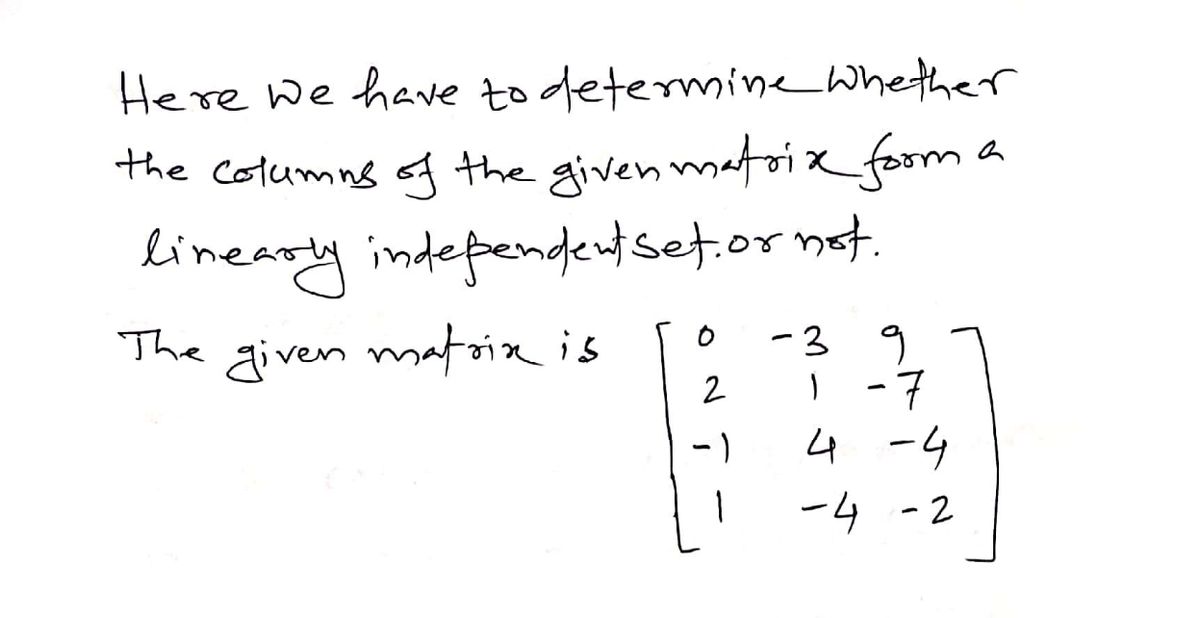 Here we have to determine whether
the columns of the given matrix form a
linearly independent set. or not.
The given matrix is [ 0 -3 9
2 1 -7
-1 4 -4
1 -4 -2 ]